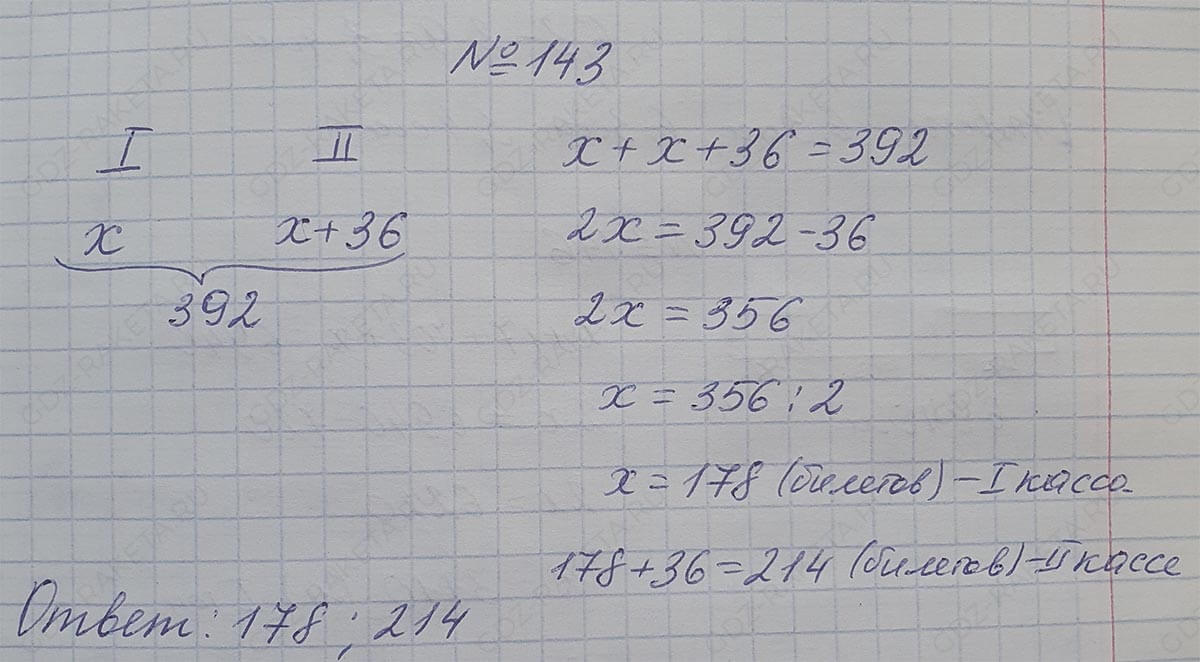 № 143
I II
x x+36
392
x + x + 36 = 392
2x = 392 - 36
2x = 356
x = 356 : 2
x = 178 (билетов) – I касса
178 + 36 = 214 (билетов) – II кассе
Ответ: 178 ; 214
GDZ-RAKETA.RU